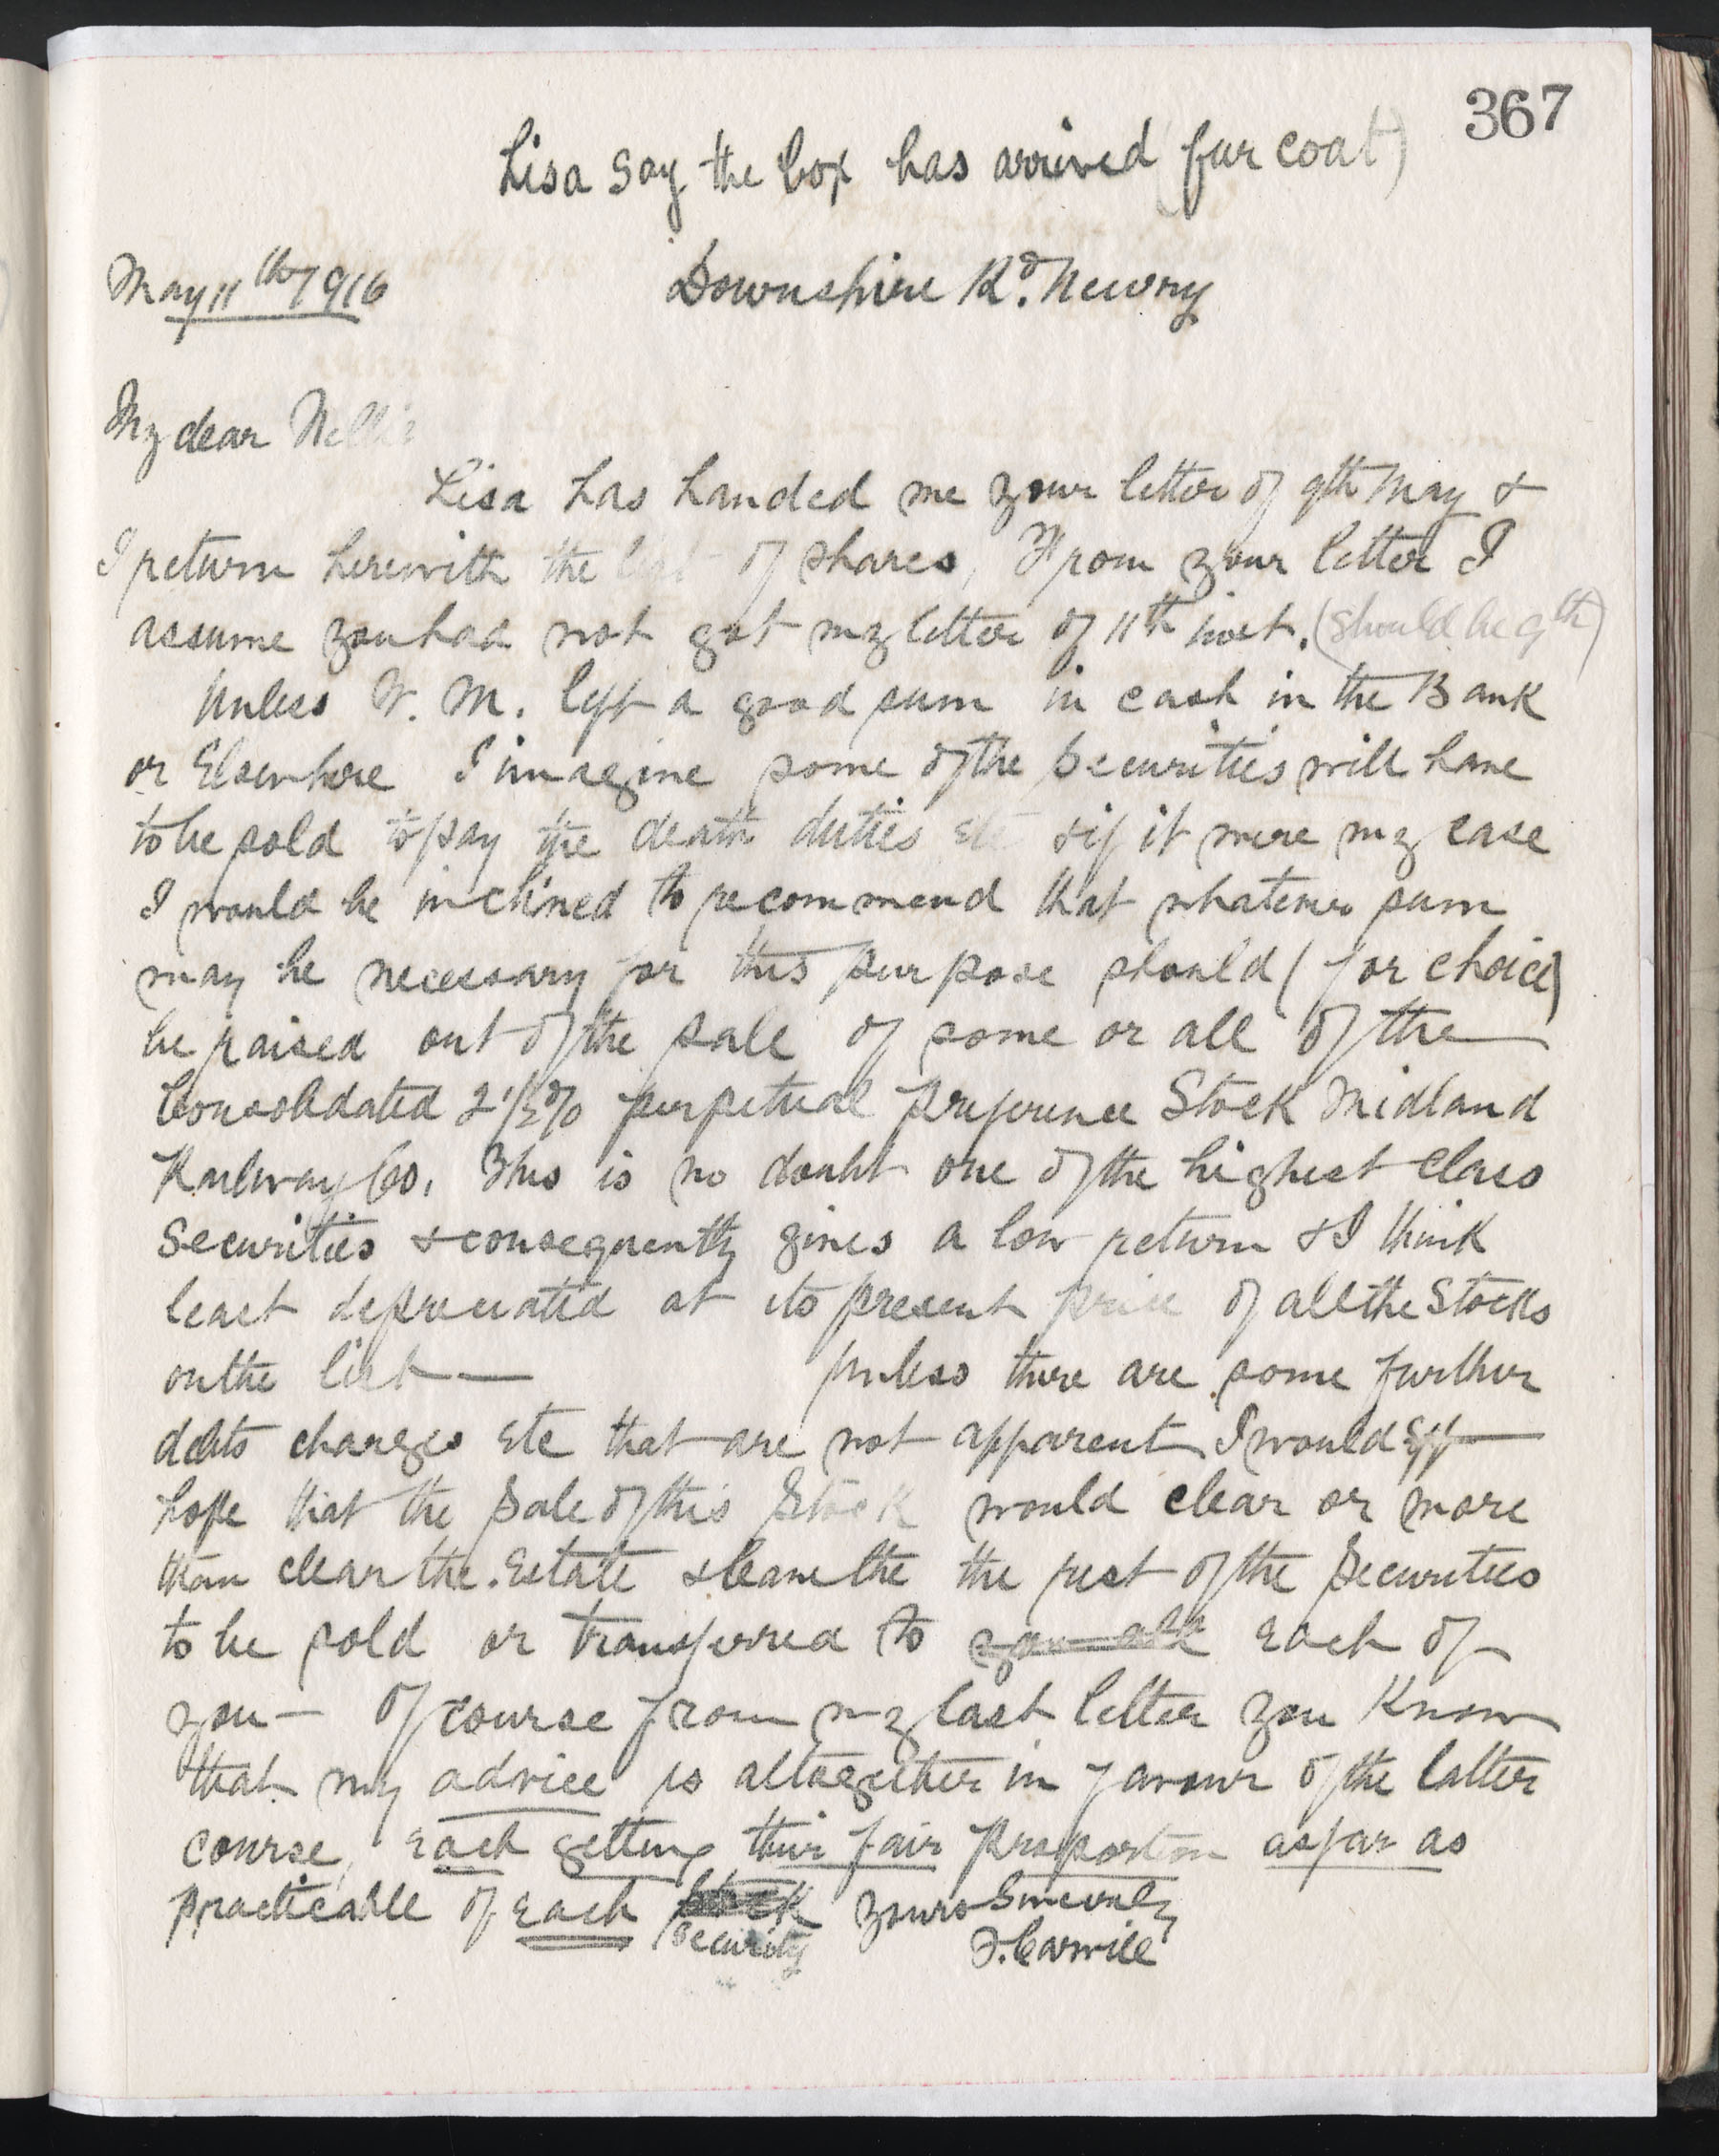 367
Lisa say the box has arrived (fur coat)
May 11th 1916
Downshire Rd. Newry
My dear Nellie
Lisa has handed me your letter of 9th May &
I return herewith the list of shares, From your letter I
assume you had not got my letter of 11th inst. (should be 9th)
Unless W. M. left a good sum in cash in the Bank
or Elsewhere I imagine some of the Securities will have
to be sold to pay the death duties etc & if it were my case
I would be inclined to recommend that whatever sum
may be necessary for this purpose should (for choice)
be raised out of the sale of some or all of the
Consolidated 2 1/2% perpetual preference Stock Midland
Railway Co. This is no doubt one of the highest class
Securities & consequently gives a low return & I think
least depreciated at its present price of all the Stocks
on the list — Unless there are some further
debts charges Etc that are not apparent I would
hope that the Sale of this Stock would clear or more
than clear the Estate & leave the the rest of the Securities
to be sold or transferred to you all Each of
you — Of course from my last letter you Know
that my advice is altogether in favour of the latter
course, Each getting their fair proportion as far as
practicable of Each stock Yours Sincerely
Security F. Carvill